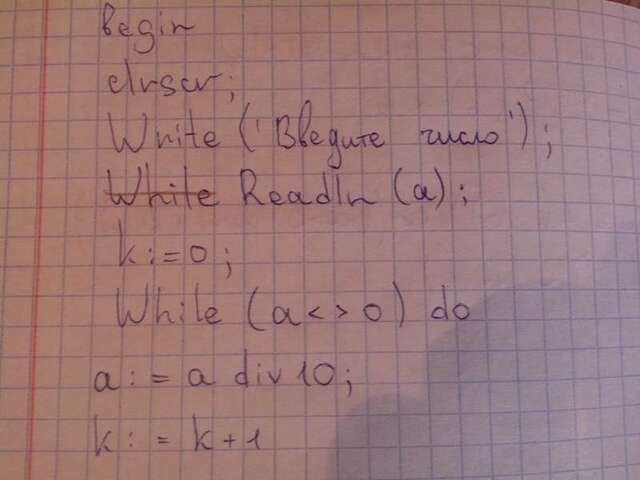 begin
clrscr;
Write ('Введите число');
While Readln (a);
k:=0;
While (a<>0) do
a:= a div 10;
k:= k+1